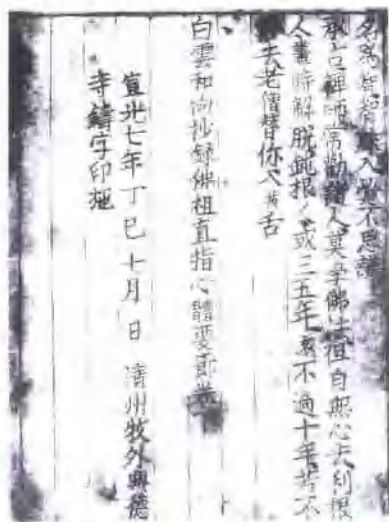 名爲智智入實不思議
承古禪師常勸諸人莫學佛法但自無心去利根
人晝時解脫鈍根人或三五年遠不過十年若不
去老僧替你入拔舌
白雲和尙抄錄佛祖直指心體要節卷
宣光七年丁巳七月 日 淸州牧外興德
寺鑄字印施